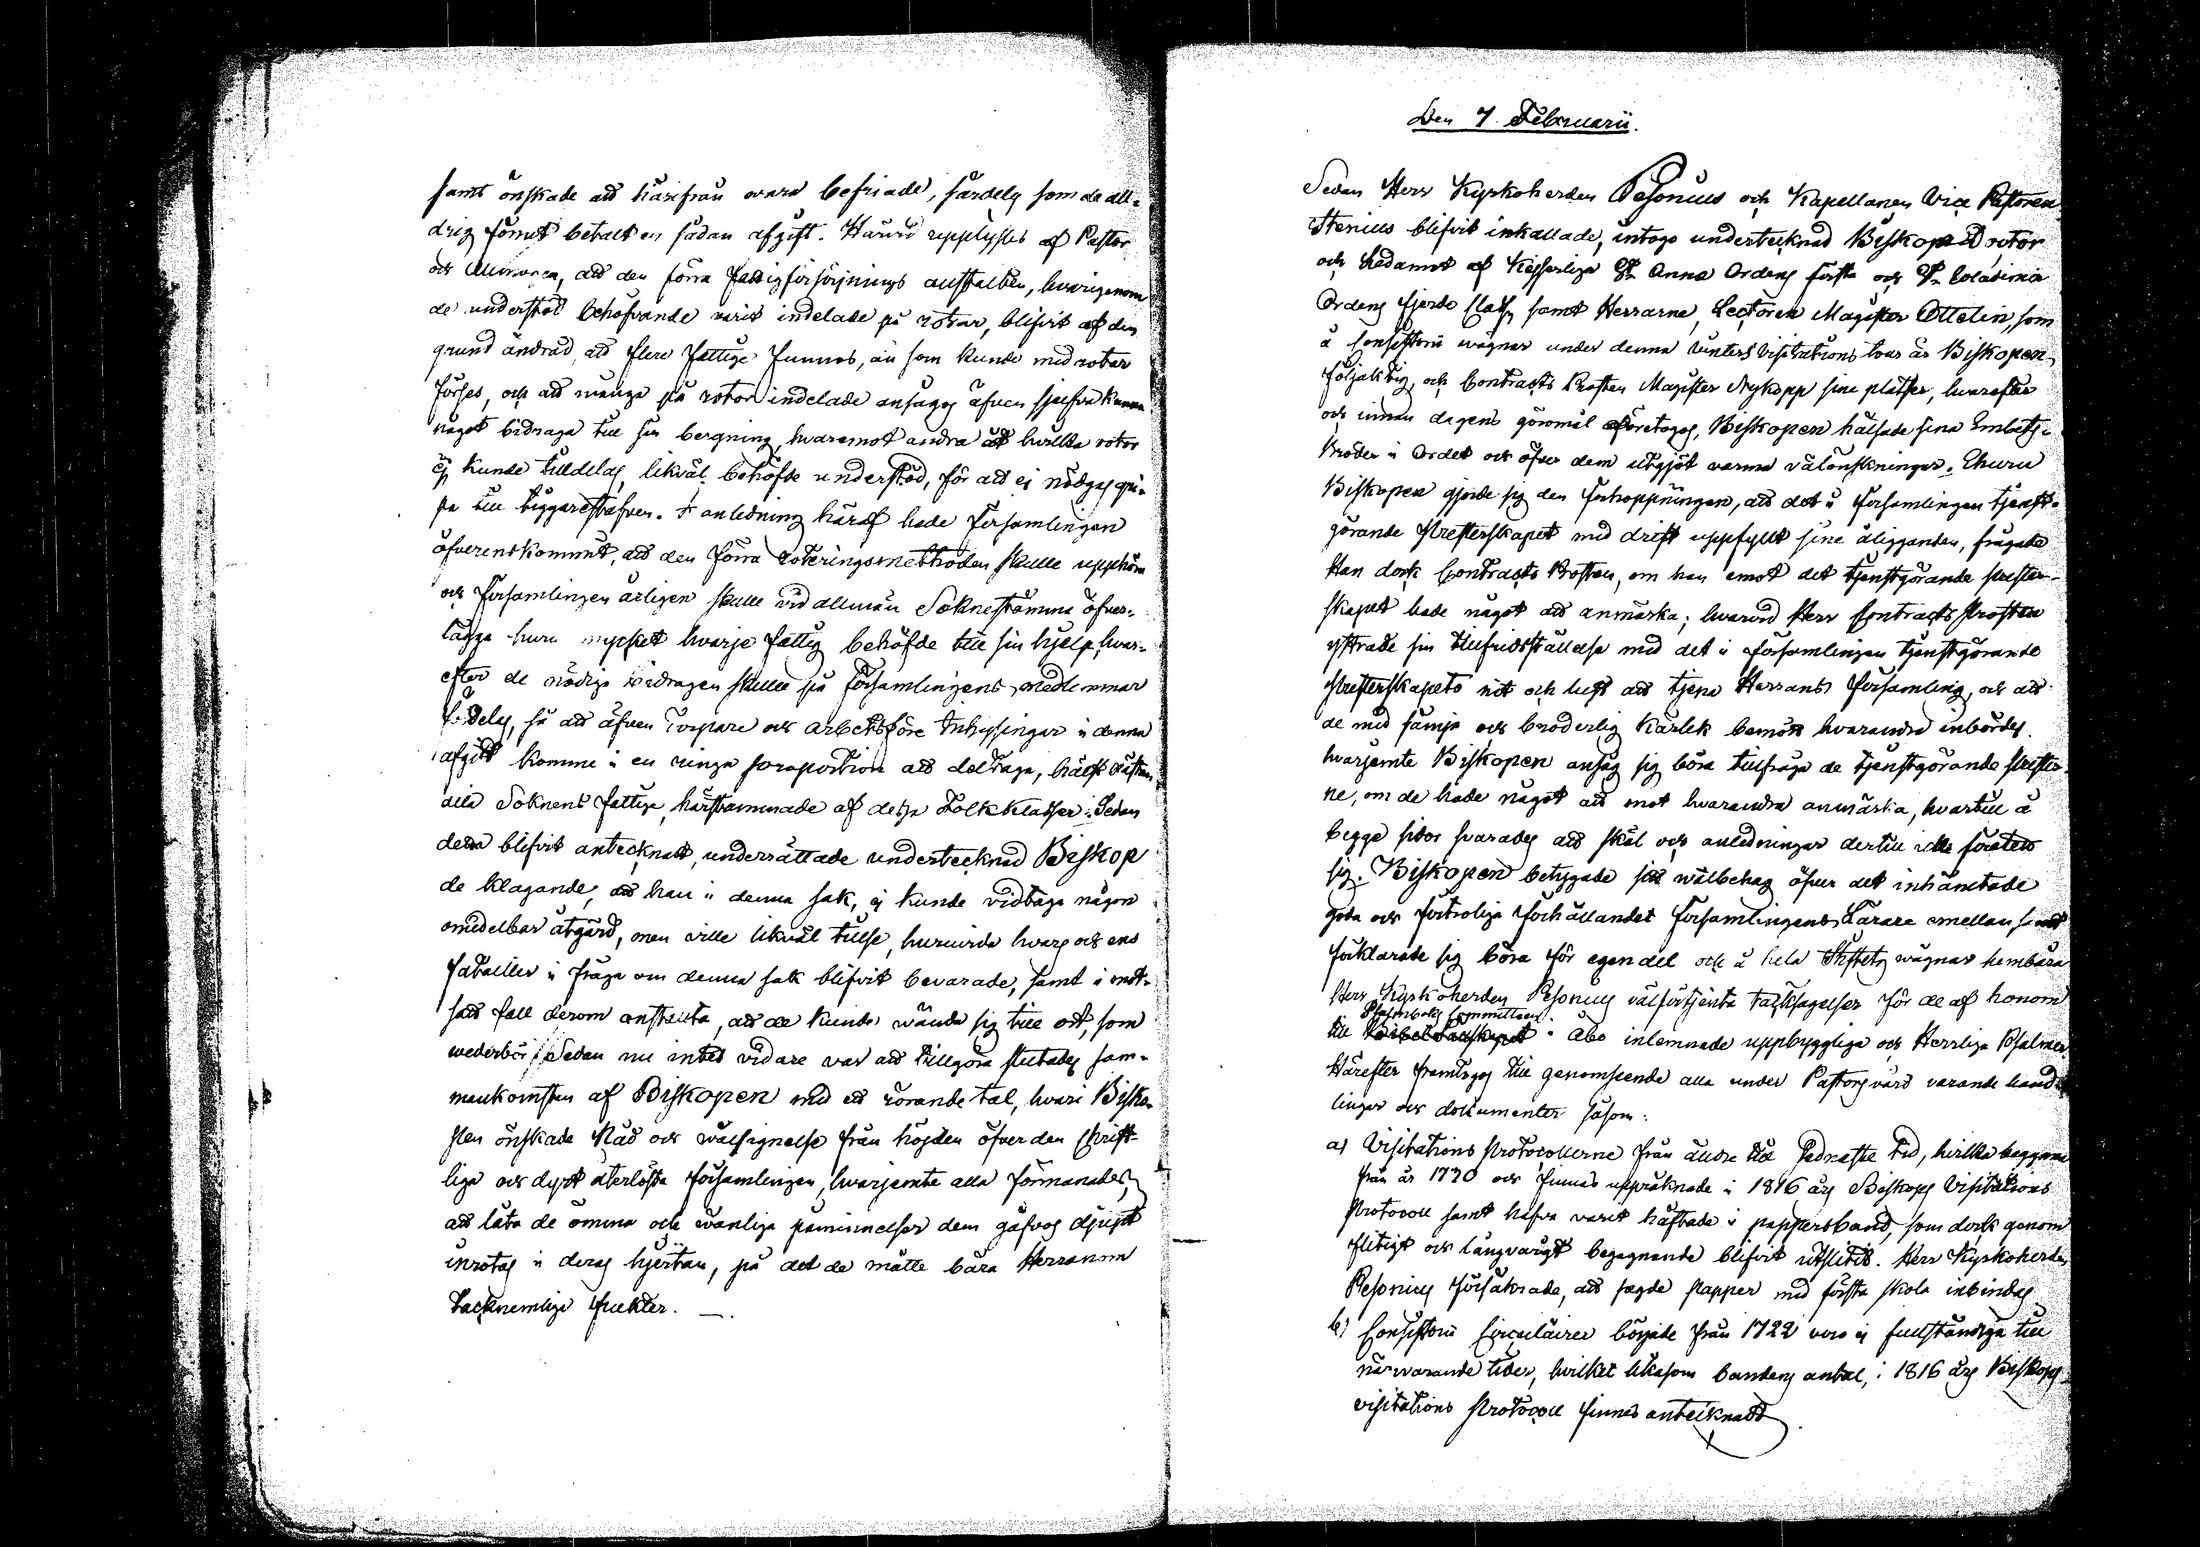 samt önskade att härifrån vara befriade, särdeles som de all-
drig förrut betalt en sådan afgift. Härvid upplystes af Pastor
och Allmogen, att den förra fattigförsörjnings anstalten, hvarigenom
de understöd behöfvande varit indelade på rotar, blifvit af den
grund ändrad, att flere fattige funnos, än som kunde med rotar
förses, och att många på rotar indelade ansågos äfven sjelfva kunna
något bidraga till sin bergning, hvaremot andra åt hvilka rotar
ej kunde tilldelas, likväl behöfde understöd, för att ej nödgas gri-
pa till tiggarestafven. I anledning häraf hade Församlingen
öfverenskommit, att den förra roteringsmethoden skulle upphöra
och Församlingen årligen skulle vid allmän Sockenstämma öfver-
lägga huru mycket hvarje fattig behöfde till sin hjelp, hvar-
efter de nödiga bidragen skulle på Församlingens medlemmar
fördelas, så att äfven Torpare och arbetsföre Inhysingar i denna
afgift komme i en ringa proportion att deltaga, hälst nästan
alla Soknens fattige, härstammade af dessa Folkklasser. Sedan
detta blifvit antecknatt, underrättade undertecknad Biskop
de klagande, att han i denna sak, ej kunde vidtaga någon
omedelbar åtgärd, men ville likväl tillse, huruvida hvars och ens
fataillier i fråga om denna sak blifvit bevarade, samt i mot-
satt fall derom anstalta, att de kunde wända sig till ort, som
wederbör. Sedan nu intet vidare var att tillgöra slutades sam-
mankomsten af Biskopen med ett rörande tal, hvari Bisko-
pen önskade Nåd och wälsignelse från högden öfver den Christ-
liga och dyrt återlösta Församlingen, hvarjemte alla förmanades,
att låta de ömma och wänliga påminnelser dem gåfvos djupt
inrotas i deras hjertan, på det de måtte bära Herranom
tacknemliga frukter. —.
Den 7 Februarii.
Sedan Herr Kyrkoherden Pesonius och Kapellanen Vice Pastoren
Stenius blifvit inkallade, intogo undertecknad Biskop Doctor
och Ledamot af Kejserliga St. Annæ Ordens första och St. Wladimirs
Ordens fjerde Class, samt Herrarne, Lectoren Magister Ottelin, som
å Consistorii wägnar under denna vinters visitations tour är Biskopen
följaktig, och Contracts Prosten Magister Nykopp sine platser, hvarefter
och innan dagens göromål företogos, Biskopen hälsade sina Embets-
bröder i Ordet och öfver dem utgjöt varma välönskningar. Ehuru
Biskopen gjorde sig den förhoppningen, att det i Församlingen tjenst-
görande Presterskapet med drift uppfyllt sine åligganden, frågade
Han dock Contracts Prosten, om han emot det tjenstgörande Prester-
skapet hade något att anmärka; hvarvid Herr Contracts Prosten
yttrade sin tillfredsställelse med det i Församlingen tjenstgörande
Presterskapets nit och lust att tjena Herrans Församling, och att
de med sämja och broderlig kärlek bemött hvarandra inbördes.
hvarjemte Biskopen ansåg sig böra tillfråga de tjenstgörande Prester-
ne, om de hade något att mot hvarandra anmärka, hvartill å
begge sidor svarades att skäl och anledningar dertill icke företett
sig. Biskopen betygade sitt wälbehag öfver det inhämtade
goda och förtroliga förhållandet Församlingens Lärare emellan, samt
förklarade sig böra för egen del och å hela Stiftets wägnar hembära
Herr Kyrkoherden Pesonius välförtjenta tacksägelser för de af honom
Psalmboks Committeen
till Bibel Sällskapet i Åbo inlemnade uppbyggliga och Herrliga Psalmer.
Härefter framtogos till genomseende alla under Pastors vård varande hand-
lingar och dokumenter såsom:
a) Visitations Protocollerne från äldre till sednaste tid, hvilka begynna
från år 1730 och finnas uppräknade i 1816 års Biskops Visitations
Protocoll samt hafva varit häftade i pappersband, som dock genom
flitigt och långvarigt begagnande blifvit utslitit. Herr Kyrkoherden
Pesonius försäkrade, att sagde papper med första skola inbindas
b) Consistorii Circulairer började från 1722 voro ej fullständiga till
närvarande tider, hvilket likasom bandens antal, i 1816 års Biskops
visitations Protocoll finnes antecknadt.